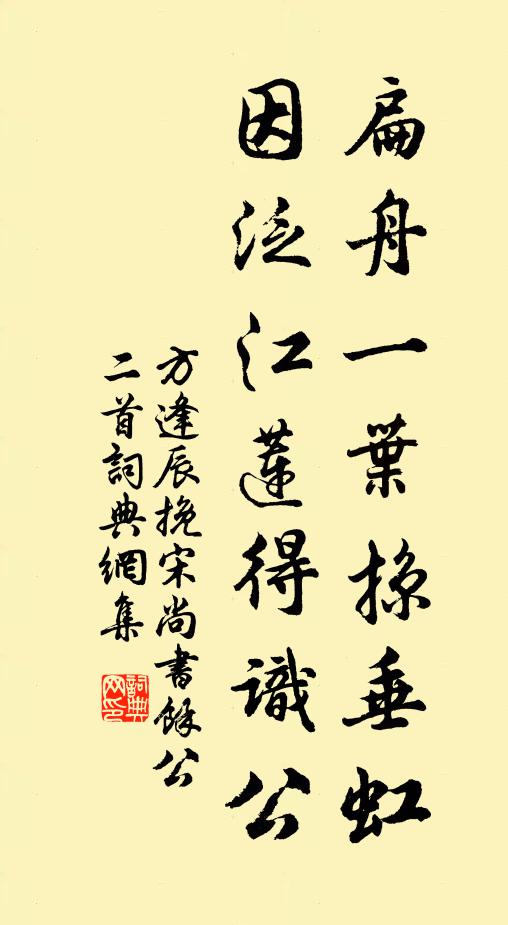 扁舟一葉掠垂虹
因泛江蓮得識公
方逢辰挽宋尚書餘公
二首詞典網集
詞典
网印